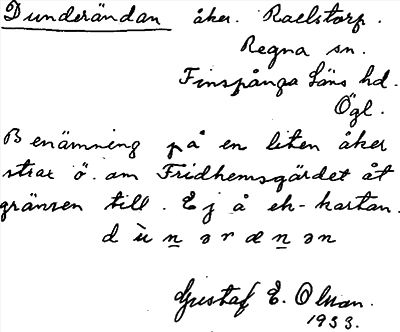 Dunderändan åker. Raelstorp.
Regna sn.
Finspånga Läns hd.
Ögl.
Benämning på en liten åker
strax ö. om Fridhemsgärdet åt
gränsen till. Ej å ek-kartan.
d ù n ə r æ n ə n
Gustaf E. Olson.
1933.